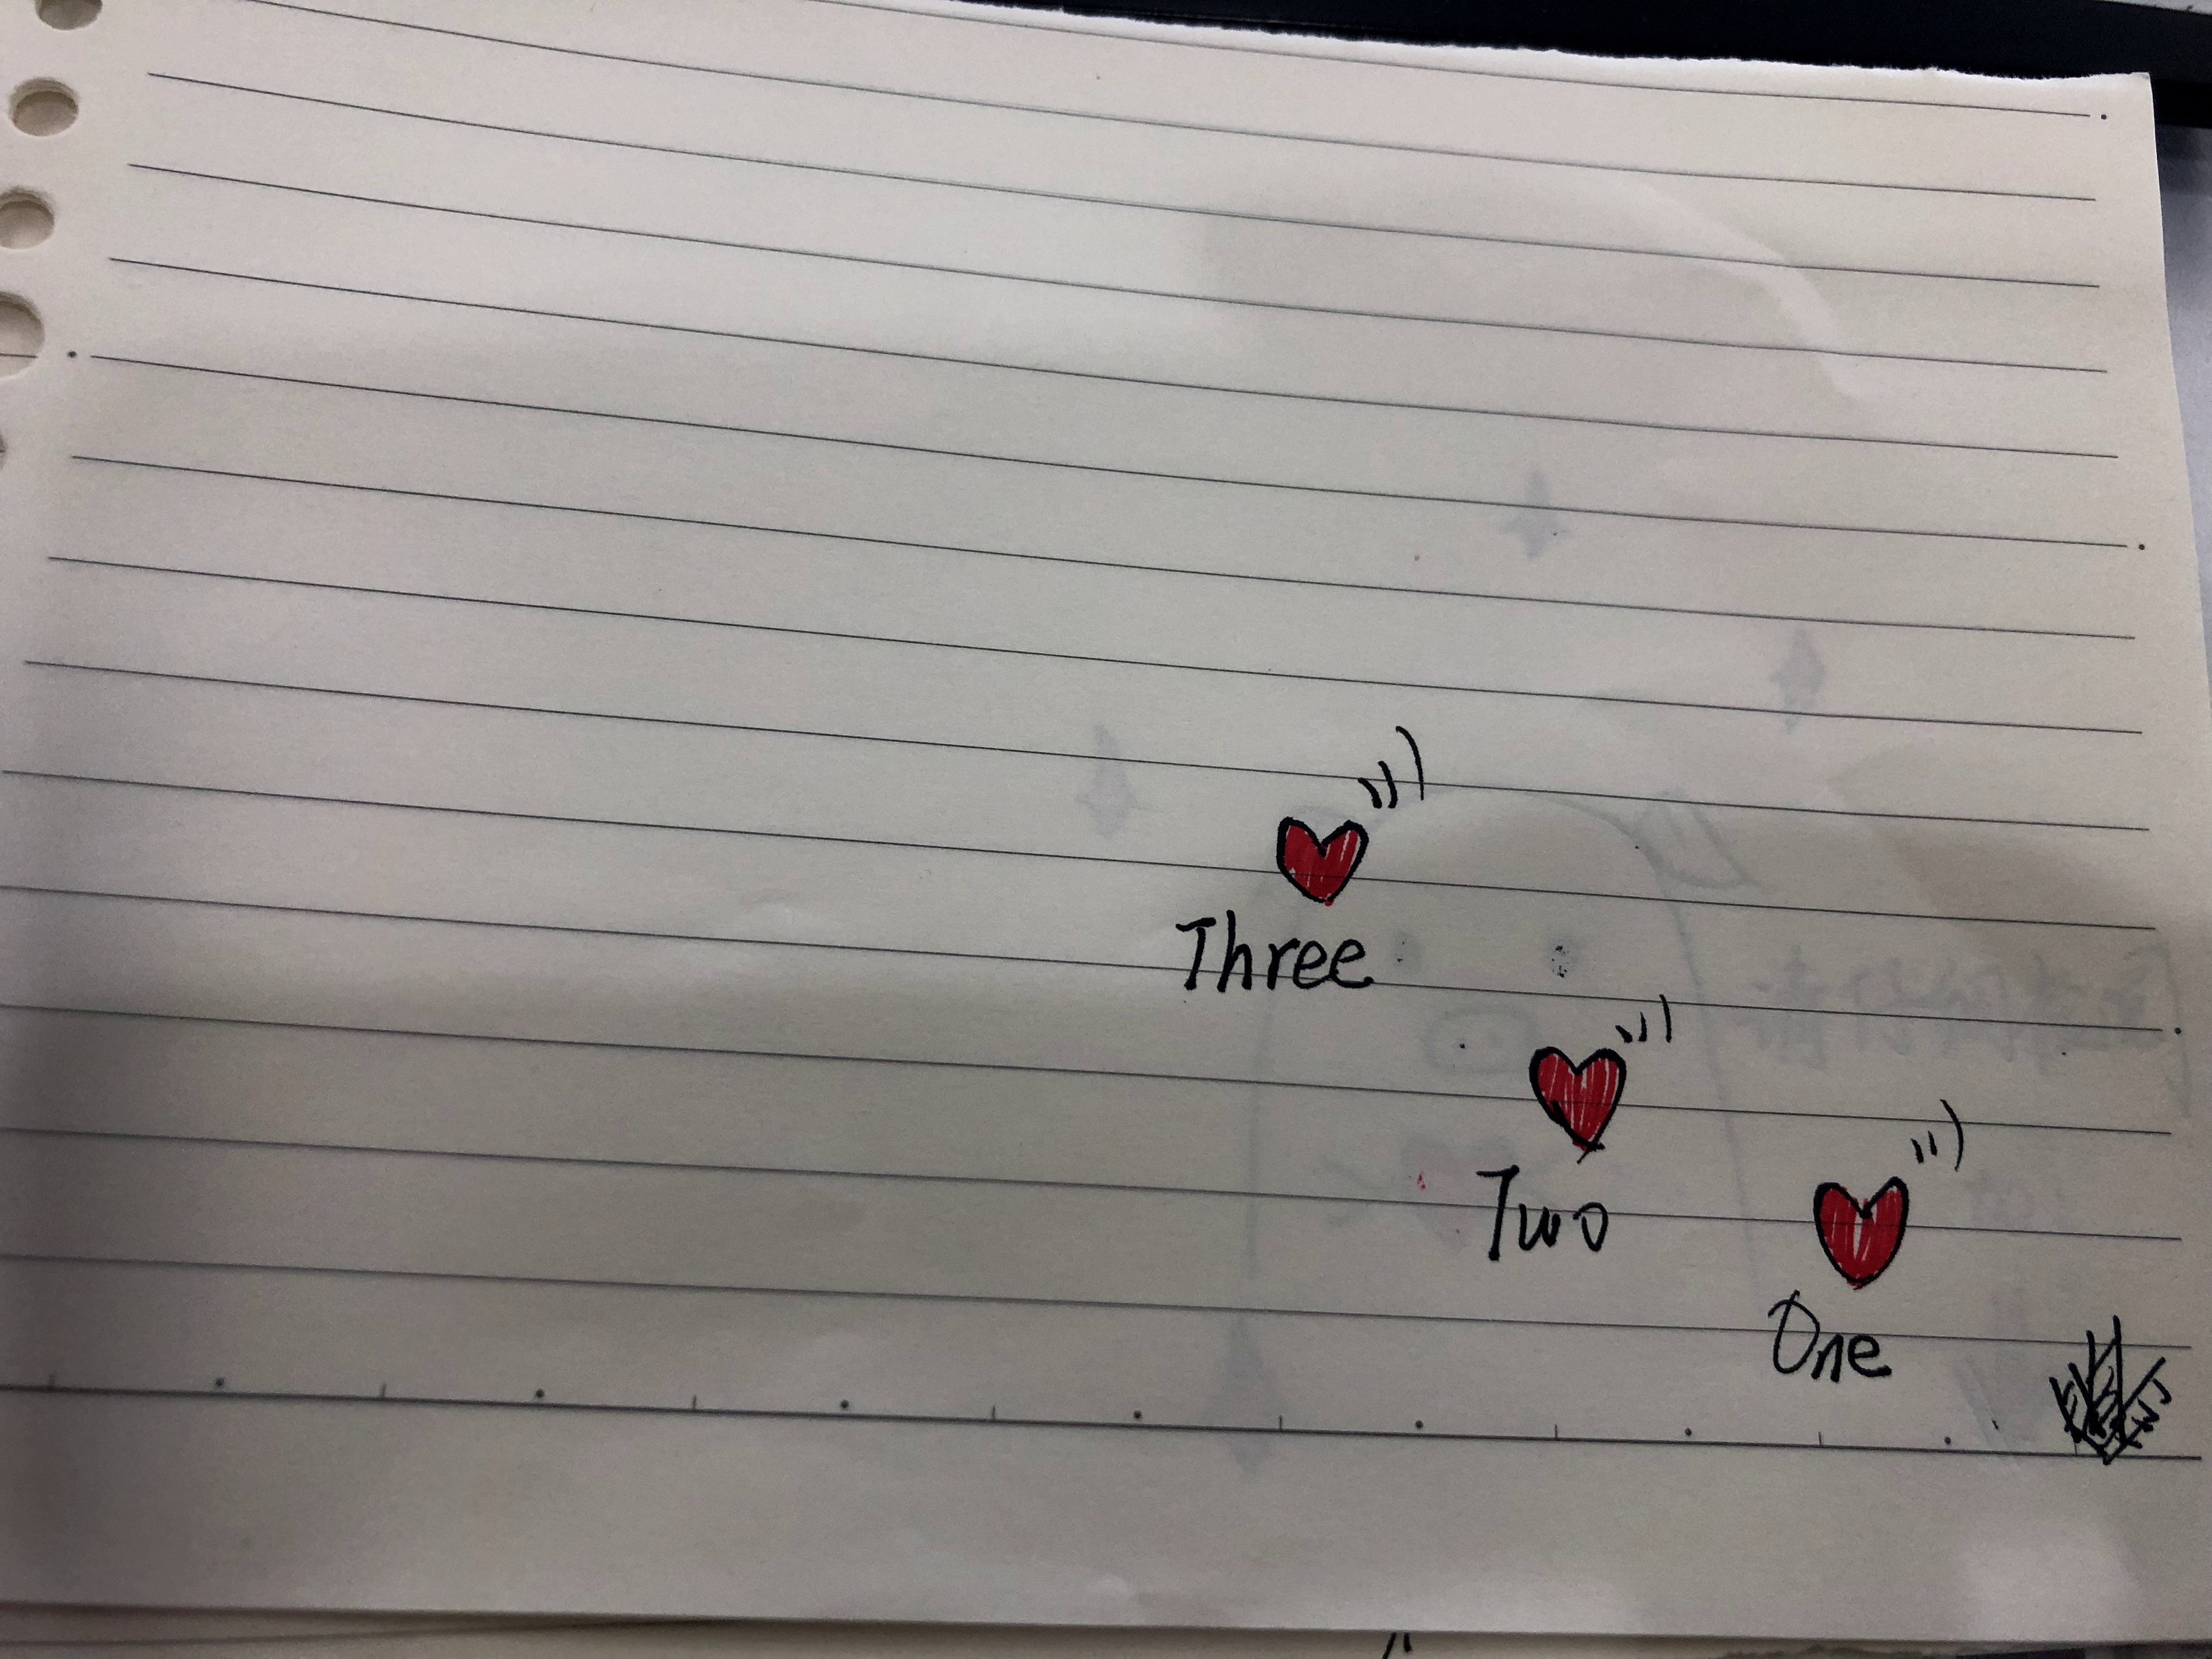 Three
Two
One